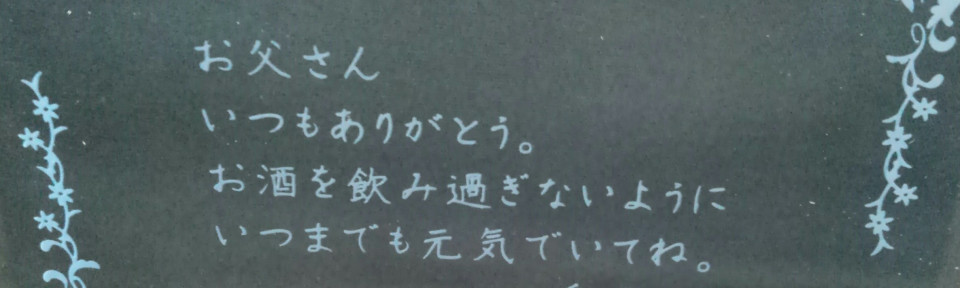 お父さん
いつもありがとう。
お酒を飲み過ぎないように
いつまでも元気でいてね。